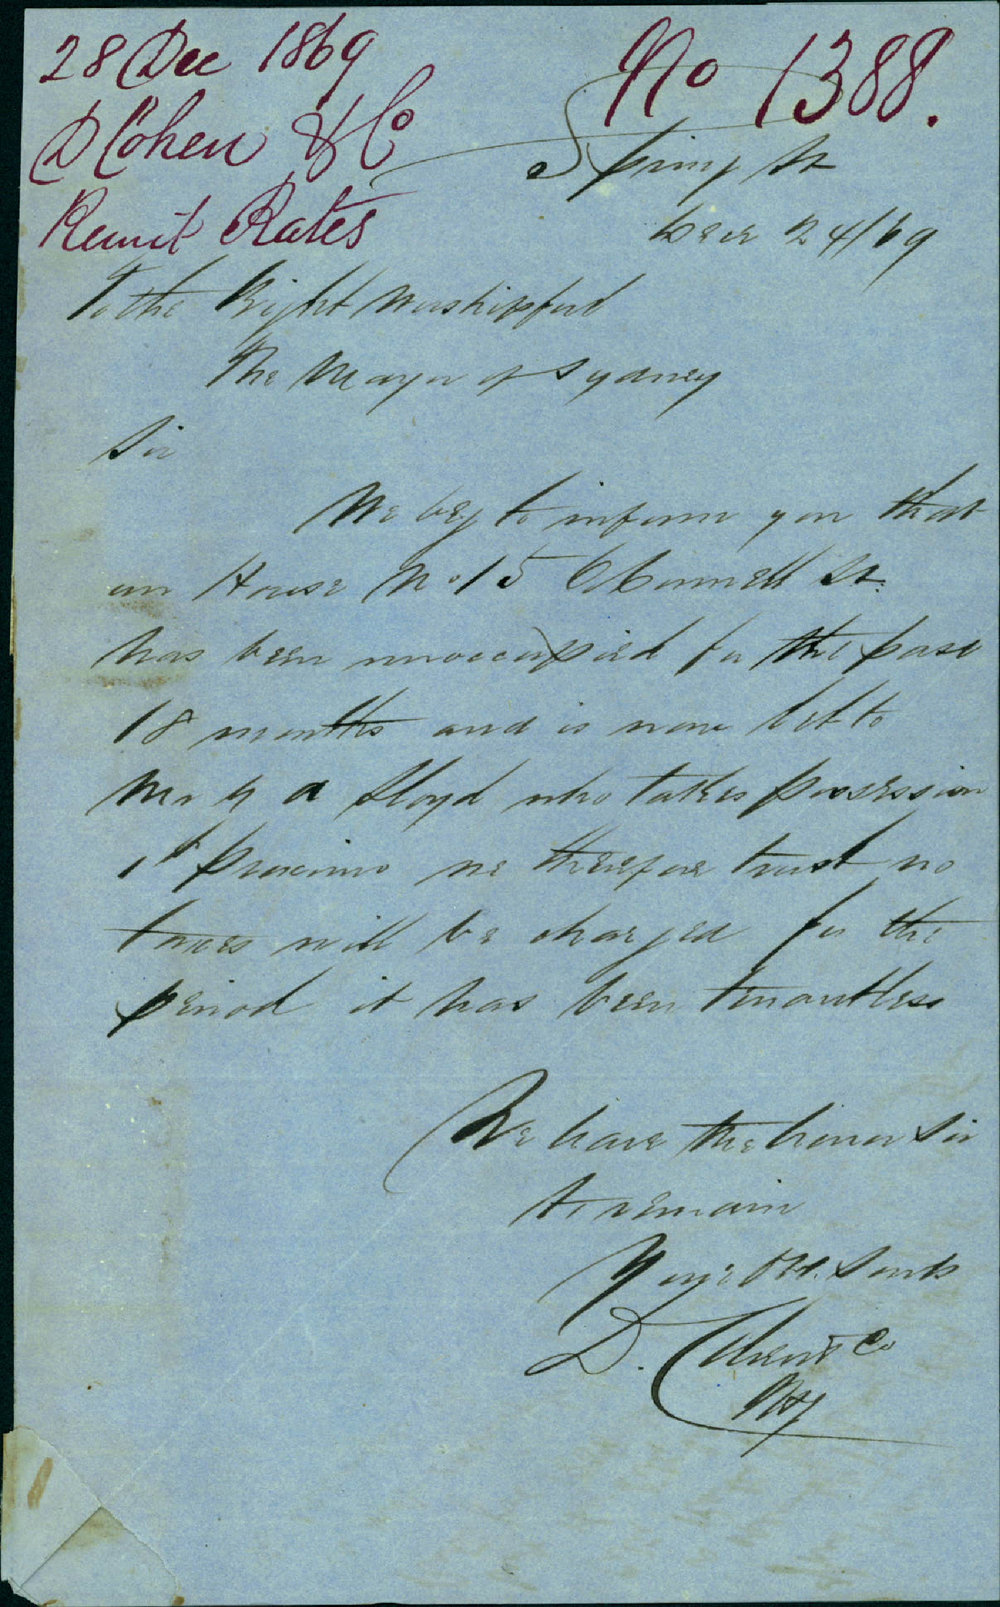 28 Dec 1869
D Cohen & Co
Remit Rates
No 1388.
Spring St
Decr 24/69
To the Right Worshipful
The Mayor of Sydney
Sir
We beg to inform you that
our House No 15 O'Connell St.
has been unoccupied for the past
18 months and is now let to
Mr G A Lloyd who takes possession
1st proximo we therefore trust no
taxes will be charged for the
period it has been tenantless
We have the honor Sir
to remain
Your Obt. Servts
D. Cohen & Co